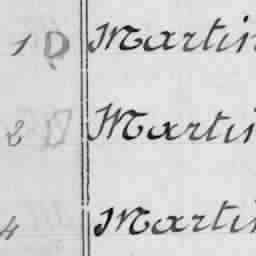 1 D Martin
2 D Martin
4 Martin